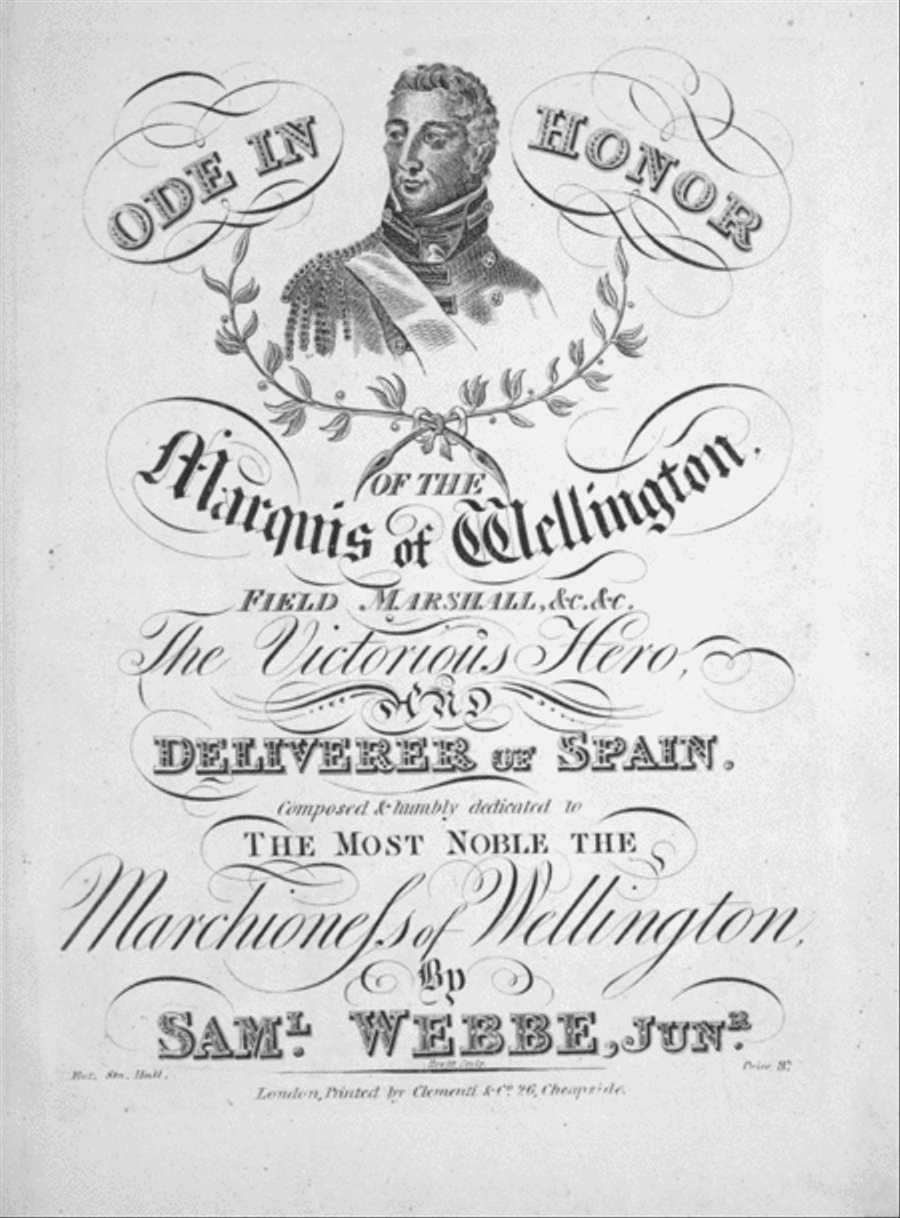 ODE IN HONOR
OF THE
Marquis of Wellington,
FIELD MARSHALL, &c. &c.
The Victorious Hero,
AND
DELIVERER OF SPAIN.
Composed & humbly dedicated to
THE MOST NOBLE THE
Marchioneſs of Wellington,
By
SAML. WEBBE, JUNR.
Sculp.
Ent. Sta. Hall.
Price 3s.
London, Printed by Clementi & Co. 26, Cheapside.